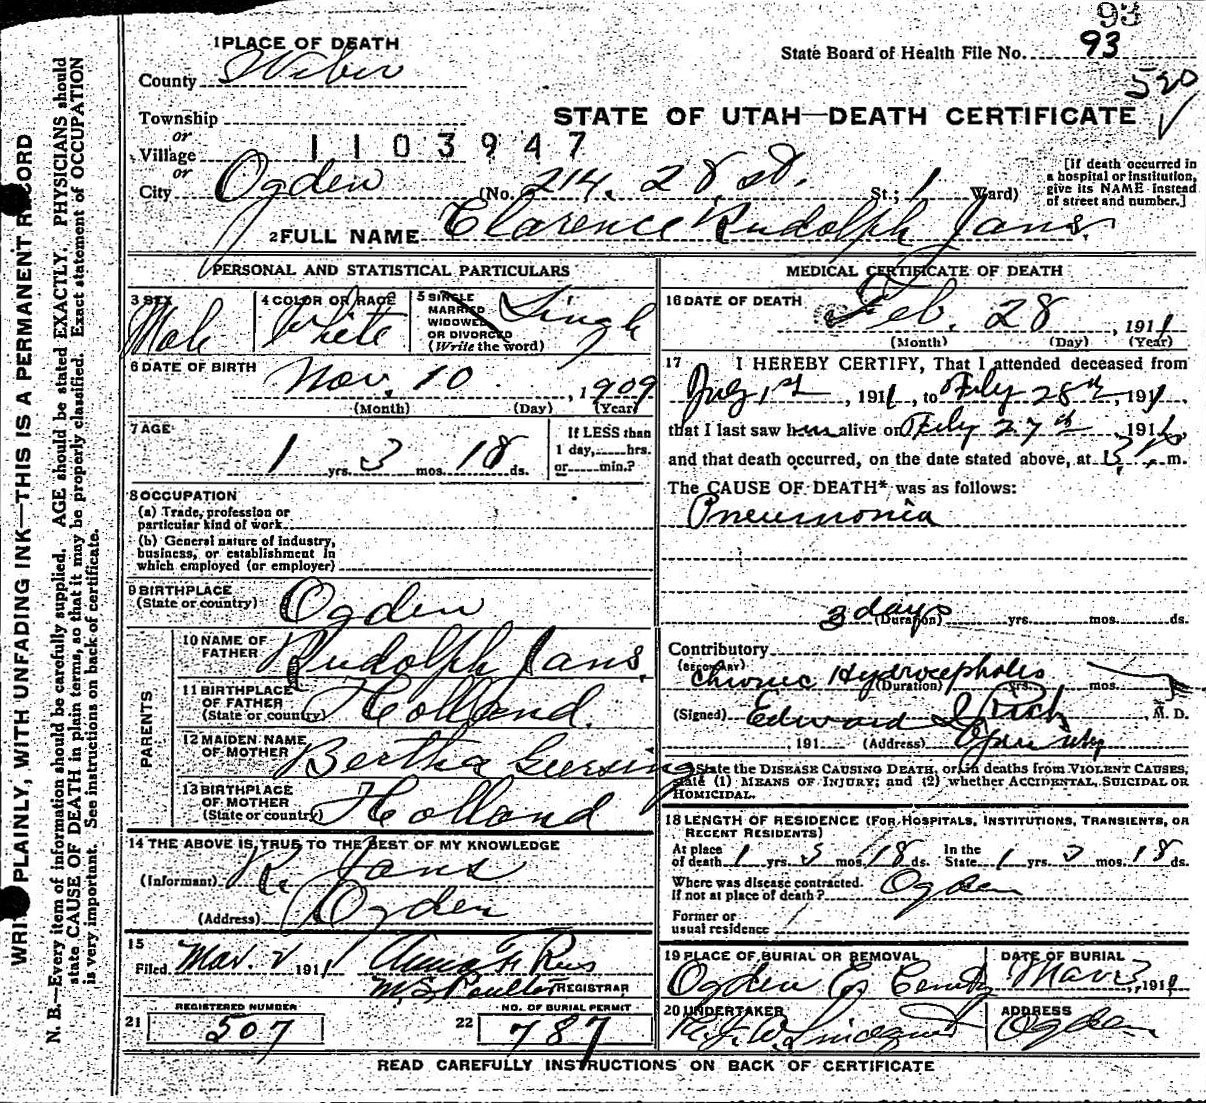 93
State Board of Health File No. 93
520
1 PLACE OF DEATH
County Weber
STATE OF UTAH—DEATH CERTIFICATE
Township
or
Village
1103947
or
City Ogden (No. 214. 28 st. St.; 1 Ward)
[If death occurred in a hospital or institution, give its NAME instead of street and number.]
2 FULL NAME Clarence Rudolph Jans.
PERSONAL AND STATISTICAL PARTICULARS
3 SEX Male
4 COLOR OR RACE White
5 SINGLE MARRIED WIDOWED OR DIVORCED (Write the word) Single
6 DATE OF BIRTH Nov. 10, 1909
(Month) (Day) (Year)
7 AGE 1 yrs. 3 mos. 18 ds.
If LESS than 1 day, hrs. or min.?
8 OCCUPATION
(a) Trade, profession or particular kind of work
(b) General nature of industry, business, or establishment in which employed (or employer)
9 BIRTHPLACE (State or country) Ogden
PARENTS
10 NAME OF FATHER Rudolph Jans.
11 BIRTHPLACE OF FATHER (State or country) Holland.
12 MAIDEN NAME OF MOTHER Bertha
13 BIRTHPLACE OF MOTHER (State or country) Holland
14 THE ABOVE IS TRUE TO THE BEST OF MY KNOWLEDGE
(Informant) R. Jans
(Address) Ogden
15
Filed Mar. 2 1911
REGISTRAR
REGISTERED NUMBER
21 507
NO. OF BURIAL PERMIT
22 787
MEDICAL CERTIFICATE OF DEATH
16 DATE OF DEATH Feb. 28, 1911
(Month) (Day) (Year)
17 I HEREBY CERTIFY, That I attended deceased from
1st, 1911, to 28th, 1911,
that I last saw him alive on 27th 1911,
and that death occurred, on the date stated above, at m.
The CAUSE OF DEATH* was as follows:
Pneumonia
3 days
(Duration) yrs. mos. ds.
Contributory (SECONDARY) Chronic Hydrocephalis
(Duration) yrs. mos.
(Signed) Edward I Rich, M. D.
191 (Address) Ogden Utah
*State the DISEASE CAUSING DEATH, or, in deaths from VIOLENT CAUSES, state (1) MEANS OF INJURY; and (2) whether ACCIDENTAL, SUICIDAL OR HOMICIDAL.
18 LENGTH OF RESIDENCE (FOR HOSPITALS, INSTITUTIONS, TRANSIENTS, OR RECENT RESIDENTS)
At place of death 1 yrs. 3 mos. 18 ds. In the State 1 yrs. 3 mos. 18 ds.
Where was disease contracted. if not at place of death? Ogden
Former or usual residence
19 PLACE OF BURIAL OR REMOVAL Ogden
DATE OF BURIAL Mar 3, 1911
20 UNDERTAKER Lindquist
ADDRESS Ogden
READ CAREFULLY INSTRUCTIONS ON BACK OF CERTIFICATE
WRITE PLAINLY, WITH UNFADING INK—THIS IS A PERMANENT RECORD
N. B.—Every item of information should be carefully supplied. AGE should be stated EXACTLY. PHYSICIANS should
state CAUSE OF DEATH in plain terms, so that it may be properly classified. Exact statement of OCCUPATION
is very important. See instructions on back of certificate.